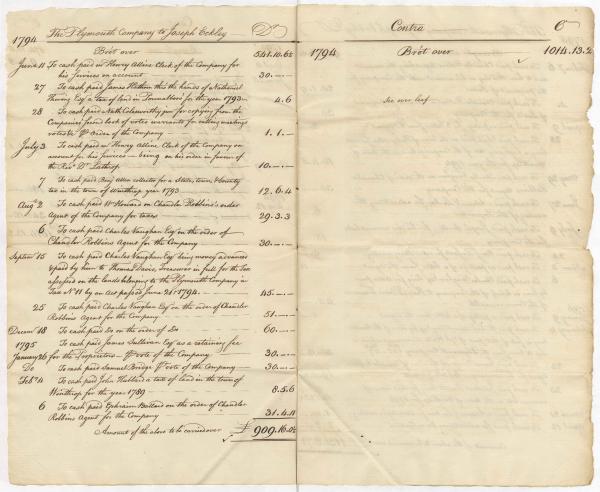 1794 The Plymouth Company to Joseph Eckley — Dr
Brôt over — 541.10.6½
June 11 To cash paid mr Henry Alline Clerk of the Company for
his services on account — 30.—.—
27 To cash paid James Hathorn thro the hands of Nathaniel
Thwing Esqr a tax of land in Pownalboro' for the year 1793 — 4.6
28 To cash paid Nath Colesworthy jun for copying from the
Companies second book of votes warrants for calling meetings
votes &c Pr Order of the Company — 1.1.—
July 3 To cash paid mr Henry Alline Clerk of the Company on
account for his services — being on his order in favour of
the Revd Dr Lathrop — 10.—.—
7 To cash paid Benj Allen collector for a State, town, & County
tax in the town of Winthrop year 1793 — 12.6.4
Augst 2 To cash paid Wm Howard on Chandler Robbins's order
Agent of the Company for taxes — 29.3.3
6 To cash paid Charles Vaughan Esqr on the order of
Chandler Robbins Agent for the Company — 30.—.—
Septemr 15 To cash paid Charles Vaughan Esqr being money advanced
& paid by him to Thomas Davis, Treasurer in full for the Tax
assessed on the lands belonging to the Plymouth Company in
Tax No 11 by an Act passed June 21st 1794. — 45.—.—
25 To cash paid Charles Vaughan Esqr on the order of Chandler
Robbins Agent for the Company — 51.—.—
Decemr 18 To cash paid do on the order of do — 60.—.—
1795 To cash paid James Sullivan Esqr as a retaining fee
January 26 for the Proprietors — Pr vote of the Company — 30.—.—
Do To cash paid Samuel Bridge Pr vote of the Company — 30.—.—
Feby 4 To cash paid John Hubbard a tax of land in the town of
Winthrop for the year 1789 — 8.5.6
6 To cash paid Ephraim Ballard on the order of Chandler
Robbins Agent for the Company — 31.4.11
Amount of the above to be carried over £ 909.16.0½
Contra — Cr
1794 Brôt over — 1014.13.2
See over leaf